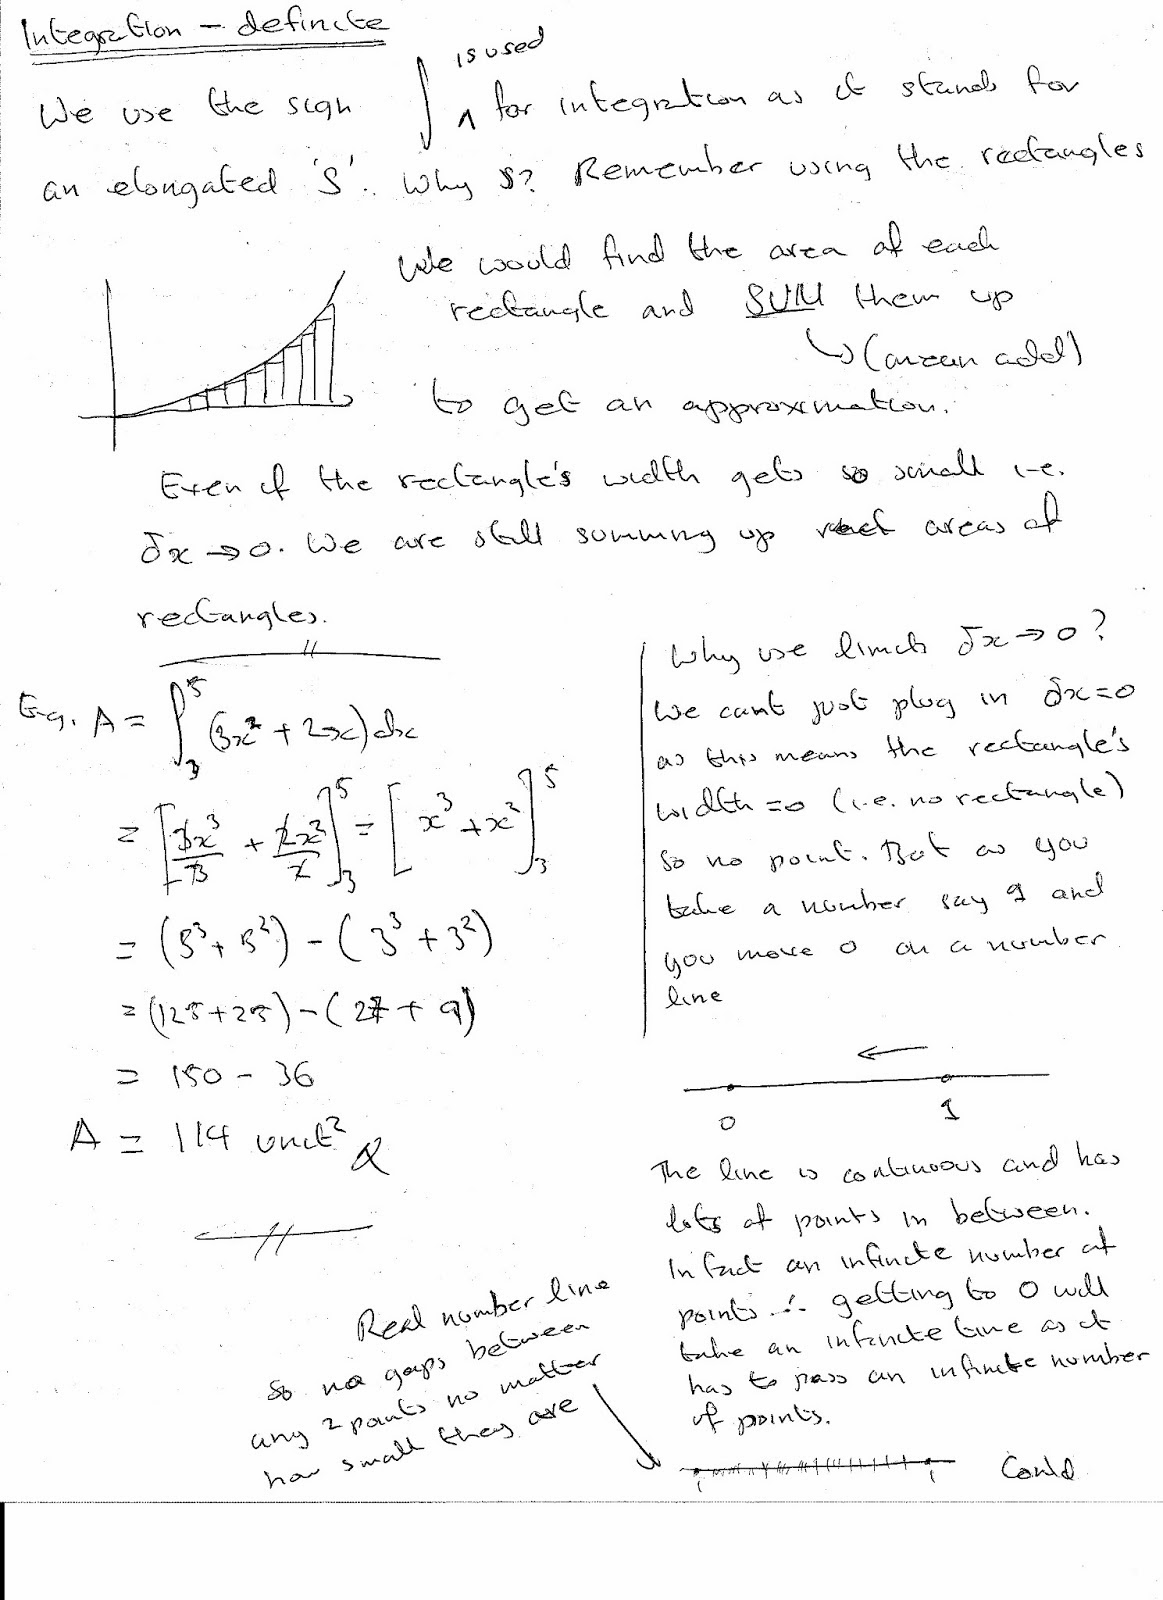 Integration - definite
We use the sign ∫ is used for integration as it stands for
an elongated 'S'. Why S? Remember using the rectangles
We would find the area of each
rectangle and SUM them up
↳ (mean add)
to get an approximation.
Even if the rectangle's width gets so small i.e.
δx → 0. We are still summing up areas of
rectangles.
Eg. A = ∫₃⁵ (3x² + 2x) dx
= [3x³/3 + 2x²/2]₃⁵ = [x³ + x²]₃⁵
= (5³ + 5²) - (3³ + 3²)
= (125 + 25) - (27 + 9)
= 150 - 36
A = 114 unit²
Why use limits δx → 0?
We cant just plug in δx = 0
as this means the rectangle's
width = 0 (i.e. no rectangle)
so no point. But as you
take a number say 1 and
you move 0 on a number
line
←
0 1
The line is continuous and has
lots of points in between.
In fact an infinite number of
points ∴ getting to 0 will
take an infinite time as it
has to pass an infinite number
of points.
Real number line
so no gaps between
any 2 points no matter
how small they are
Could